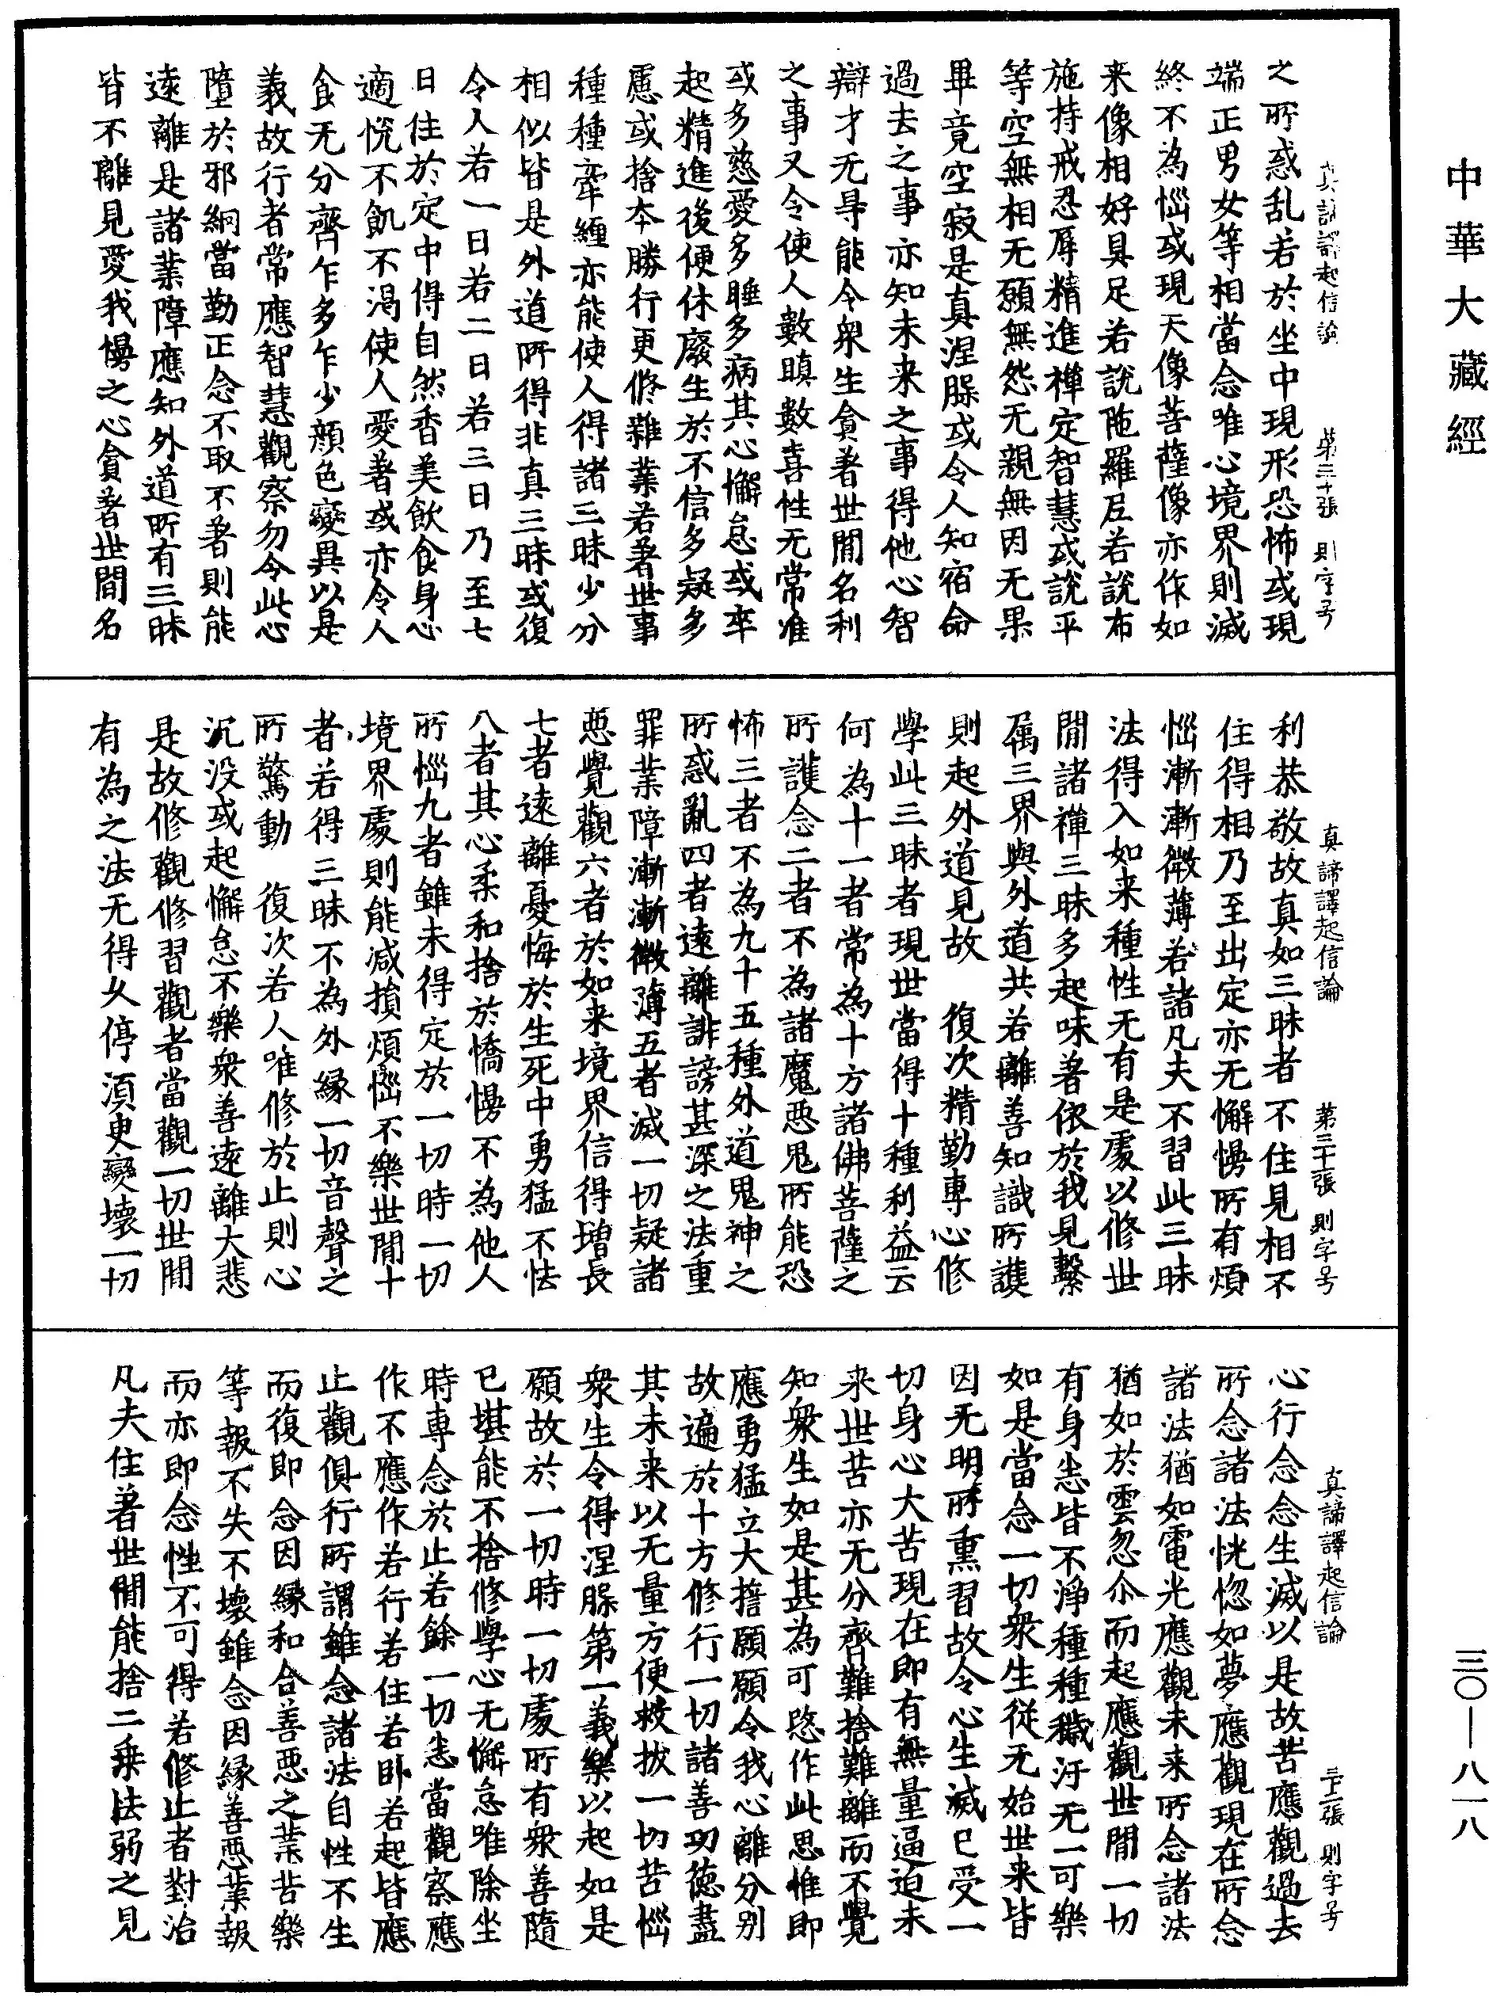 中華大藏經
真諦譯起信論 第二十張 則字号
之所惑乱若於坐中現形恐怖或現
端正男女等相當念唯心境界則滅
終不為惱或現天像菩薩像亦作如
来像相好具足若說陁羅尼若說布
施持戒忍辱精進禅定智慧或說平
等空無相无願無怨无親無因无果
畢竟空寂是真涅脲或令人知宿命
過去之事亦知未来之事得他心智
辯才无㝵能令衆生貪著世間名利
之事又令使人數瞋數喜性无常准
或多慈愛多睡多病其心懈怠或卒
起精進後便休廢生於不信多疑多
慮或捨本勝行更修雜業若著世事
種種牽纏亦能使人得諸三昧少分
相似皆是外道所得非真三昧或復
令人若一日若二日若三日乃至七
日住於定中得自然香美飲食身心
適恱不飢不渴使人愛著或亦令人
食无分齊乍多乍少顔色變異以是
義故行者常應智慧觀察勿令此心
墮於邪網當勤正念不取不著則能
遠離是諸業障應知外道所有三昧
皆不離見愛我慢之心貪著世間名
真諦譯起信論 第三十張 則字号
利恭敬故真如三昧者不住見相不
住得相乃至出定亦无懈慢所有煩
惱漸漸微薄若諸凡夫不習此三昧
法得入如来種性无有是處以修世
間諸禅三昧多起味著依於我見繫
属三界與外道共若離善知識所護
則起外道見故 復次精勤專心修
學此三昧者現世當得十種利益云
何為十一者常為十方諸佛菩薩之
所護念二者不為諸魔惡鬼所能恐
怖三者不為九十五種外道鬼神之
所惑亂四者遠離誹謗甚深之法重
罪業障漸漸微薄五者滅一切疑諸
惡覺觀六者於如来境界信得增長
七者遠離憂悔於生死中勇猛不怯
八者其心柔和捨於憍慢不為他人
所惱九者雖未得定於一切時一切
境界處則能减損煩惱不樂世間十
者若得三昧不為外緣一切音聲之
所驚動 復次若人唯修於止則心
沉没或起懈怠不樂衆善遠離大悲
是故修觀修習觀者當觀一切世間
有為之法无得久停湏臾變壞一切
真諦譯起信論 三十一張 則字号
心行念念生滅以是故苦應觀過去
所念諸法恍惚如夢應觀現在所念
諸法猶如電光應觀未来所念諸法
猶如於雲忽尒而起應觀世間一切
有身悉皆不淨種種穢汙无一可樂
如是當念一切衆生従无始世来皆
因无明所熏習故令心生滅已受一
切身心大苦現在即有無量逼迫未
来世苦亦无分齊難捨難離而不覺
知衆生如是甚為可愍作此思惟即
應勇猛立大誓願願令我心離分別
故遍於十方修行一切諸善功德盡
其未来以无量方便救拔一切苦惱
衆生令得涅脲第一義樂以起如是
願故於一切時一切處所有衆善隨
已堪能不捨修學心无懈怠唯除坐
時專念於止若餘一切悉當觀察應
作不應作若行若住若卧若起皆應
止觀俱行所謂雖念諸法自性不生
而復即念因緣和合善惡之業苦樂
等報不失不壞雖念因緣善惡業報
而亦即念性不可得若修止者對治
凡夫住著世間能捨二乗法弱之見
三〇—八一八